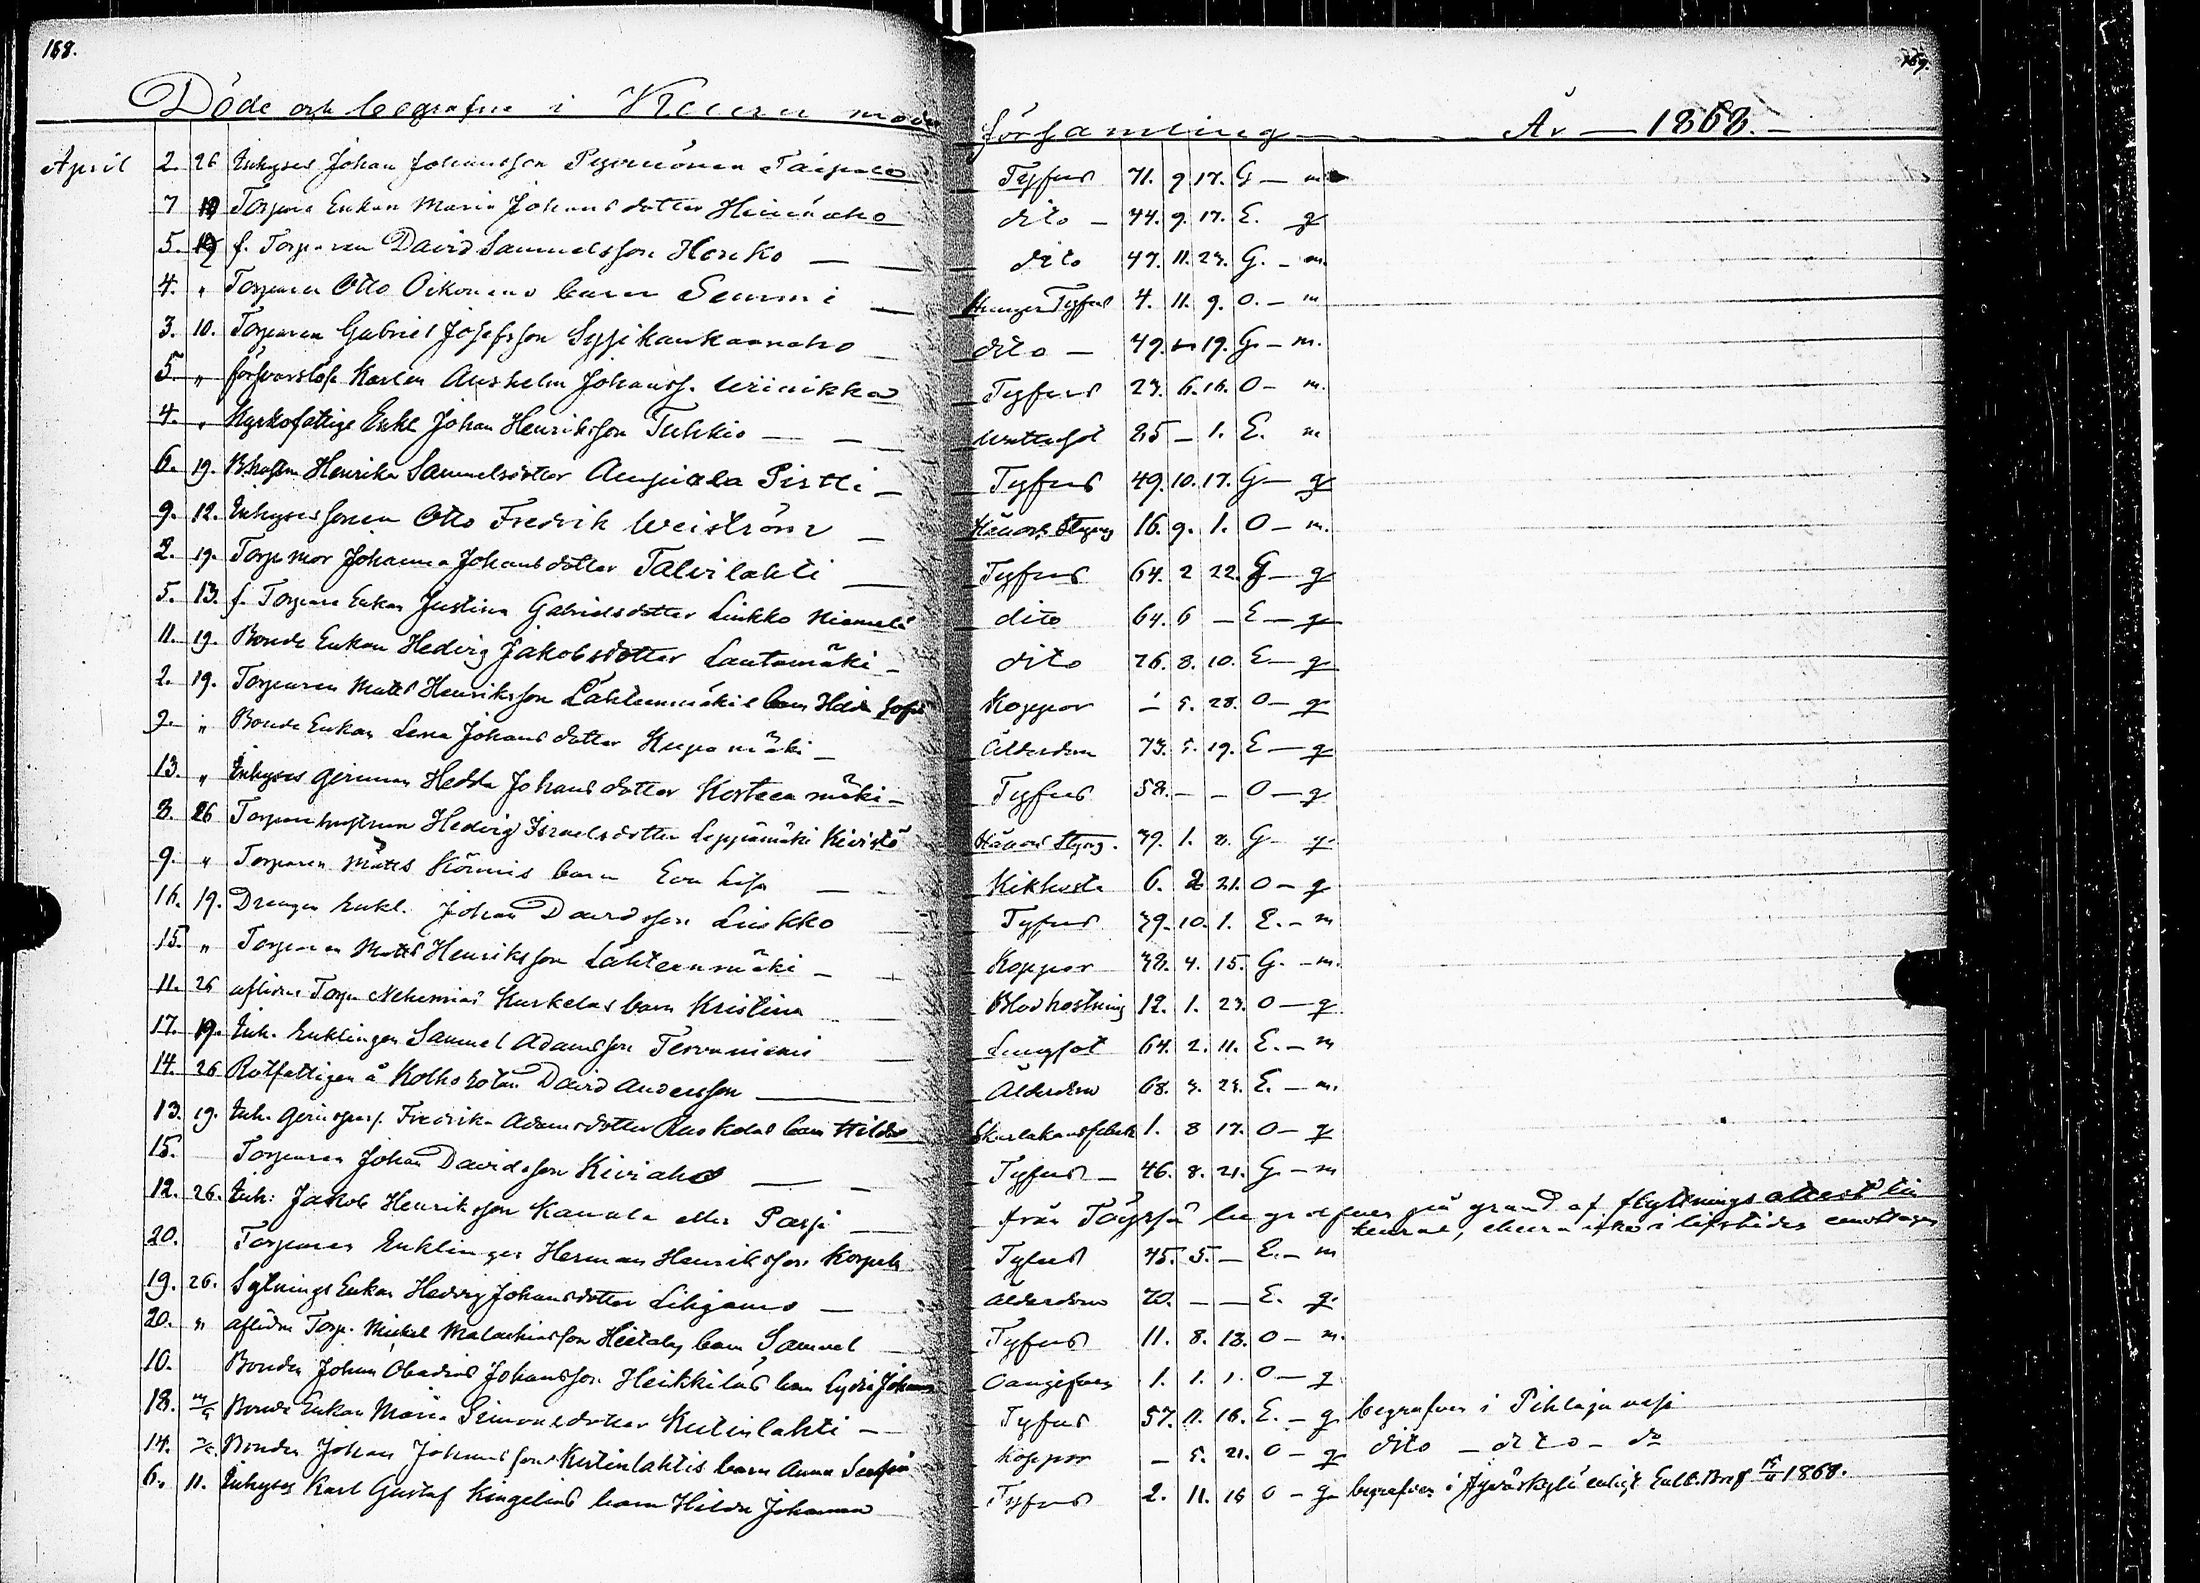 168. 169.
Döde och begrafne i Keuru moder församling — År — 1868. —
April 2. 26 Inhyses Johan Johansson Pyrnönen Taipale — Tyfus 71. 9. 17. G — m
7 19 Torpare Enkan Maria Johansdotter Heinäaho dito — 44. 9. 17. E. q
5. 19 f. Torparen David Samuelsson Honko — dito 47. 11. 23. G. — m.
4. " Torparen Otto Oikonens barn Sammi — Hunger Tyfus 4. 11. 9. O. — m
3. 10. Torparen Gabriel Josefsson Sysikankaanaho — dito — 49. — 19. G — m.
5. " försvarslöse Karlen Anshelm Johanss. Wiinikka — Tyfus 23. 6. 16. O — m.
4. " Kyrkofattige Enkl Johan Henriksson Tuhkio — — Wattusot 85 — 1. E. m
6. 19. Bhustru Henrika Samuelsdotter Ampiala Pirtti — Tyfus 49. 10. 17. G — q
9. 12. Inhyses sonen Otto Fredrik Weiström — Håll och Styng 16. 9. 1. O — m.
2. 19. Torp mor Johanna Johansdotter Talvilahti — Tyfus 64. 2 22. G — q
5. 13. f. Torpare Enkan Justina Gabrielsdotter Liukko Niemelä — dito 64. 6 — E — q
11. 19. Bonde Enkan Hedvig Jakobsdotter Lautamäki — dito 76. 8. 10. E — q
2. 19. Torparen Matts Henriksson Lähteenmäkis barn Hilda Sofia Koppor — 5. 28. O — q
9. " Bonde Enkan Lena Johansdotter Kupamäki — Ålderdom 73. 5. 19. E — q
13. " Inhyses qvinnan Hedda Johansdotter Kosteenmäki — Tyfus 58. — — O — q
8. 26 Torpare hustrun Hedvig Israelsdotter Leppämäki Kivistö Håll och Styng. 39. 1. 8. G — q
9. " Torparen Matts Körmis barn Eva Lisa — Kikhosta 6. 2 21. O — q
16. 19. Drengen Enkl. Johan Davidsson Liukko — Tyfus 39. 10. 1. E. — m
15. " Torparen Matts Henriksson Lähteenmäki — Koppor 38. 4. 15. G. — m.
11. 26 aflidne Torp. Nehemias Kurkelas barn Kristina — Blodhostning 12. 1. 23. O — q
17. 19. Inh. Enklingen Samuel Adamsson Tervaniemi — Lungsot 64. 2. 11. E. — m
14. 26 Rotfattigen å Kolho David Andersson — Ålderdom 68. 3. 23. E. — m.
13. 19. Inh. qvinspers. Fredrika Adamsdotter Ruskelas barn Hilda Skarlakansfeber 1. 8 17. O — q
15. Torparen Johan Davidsson Kiviaho — — Tyfus — 46. 8. 21. G — m
12. 26. Inh: Jakob Henriksson Kanala eller Parsi — från Töysä begrafven på grund af flyttnings attest till
keurue, ehuru icke i lifstiden emottagen
20. Torparen Enklingen Herman Henriksson Korpela Tyfus 45. 5. — E. — m
19. 26. Sytnings Enkan Hedvig Johansdotter Lihjamo — Ålderdom 70. — — E. q.
20. " aflidne Torp. Mickel Malachiasson Hietalas barn Samuel — Tyfus 11. 8. 18. O — m.
10. Bonden Johan Obadias Johansson Heikkiläs barn Lydia Johanna Oangifven 1. 1. 1. O — q
18. Bonde Enkan Maria Simonsdotter Kutinlahti — Tyfus 57. 11. 16. E. — q begrafven i Pihlajavesi
14. Bonden Johan Johansson Kutinlahtis barn Anna Serafia Koppor — 5. 21. O — q dito — dito — do
6. 11. Inhyses Karl Gustaf Kingelins barn Hilda Johanna Tyfus 2. 11. 16 O — q begrafven i Jyväskylä enligt Embt. Bref 1868.